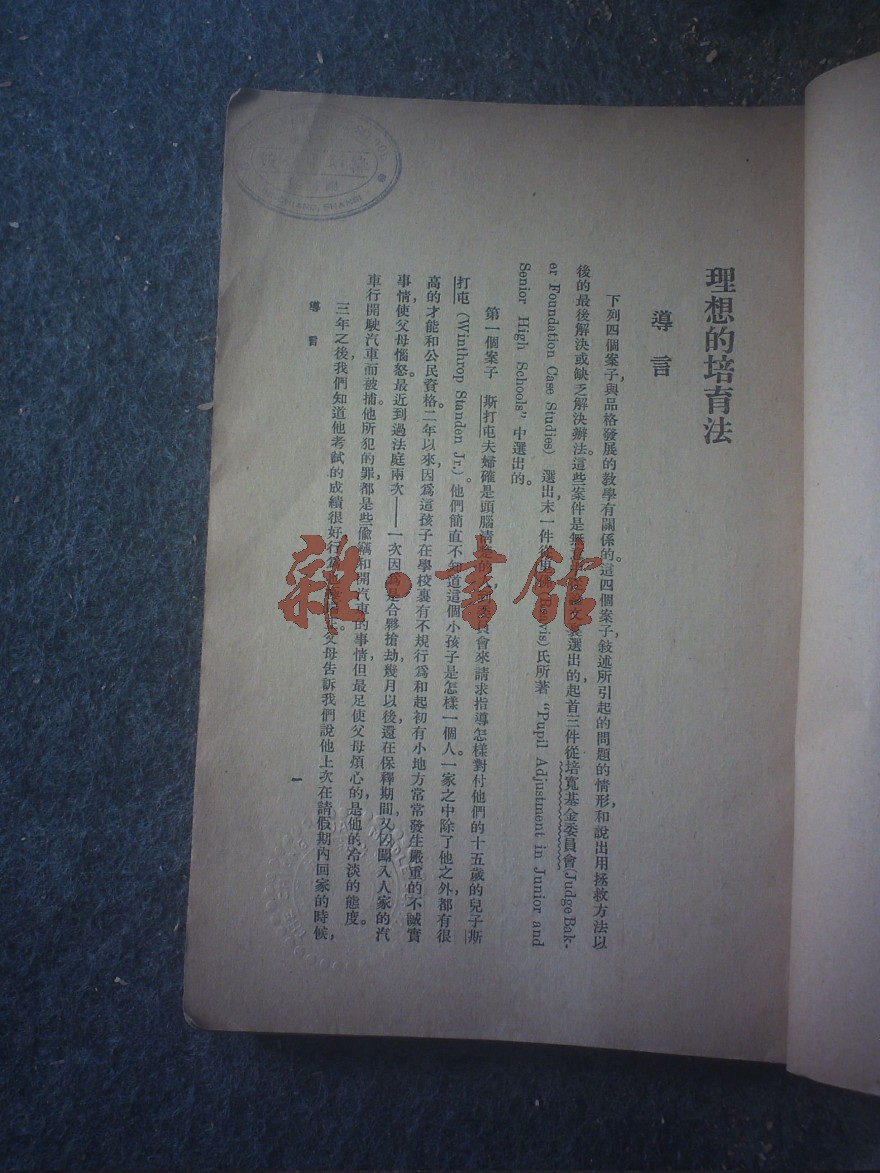 理想的培育法
導言
下列四個案子,與品格發展的教學有關係的。這四個案子,敍述所引起的問題的情形,和說出用拯救方法以
後的最後解決或缺乏解決辦法。這些案件是無 選出的,起首三件從培寬基金委員會(Judge Bak-
er Foundation Case Studies) 選出,末一件從 氏所著 "Pupil Adjustment in Junior and
Senior High Schools" 中選出的。
第一個案子 斯打屯夫婦確是頭腦清 的人,到委員會來請求指導怎樣對付他們的十五歲的兒子斯
打屯 (Winthrop Standen Jr.)。他們簡直不知道這個小孩子是怎樣一個人。一家之中除了他之外,都有很
高的才能和公民資格。二年以來,因爲這孩子在學校裏有不規行爲和起初有小地方常常發生嚴重的不誠實
事情,使父母惱怒。最近到過法庭兩次——一次因爲是合夥搶劫,幾月以後,還在保釋期間,又因闖入人家的汽
車行開駛汽車而被捕。他所犯的罪,都是些偷竊和開汽車的事情,但最足使父母煩心的,是他的冷淡的態度。
三年之後,我們知道他考試的成績很好,行爲 父母告訴我們說他上次在請假期內回家的時候,
導言
一
雜·書館